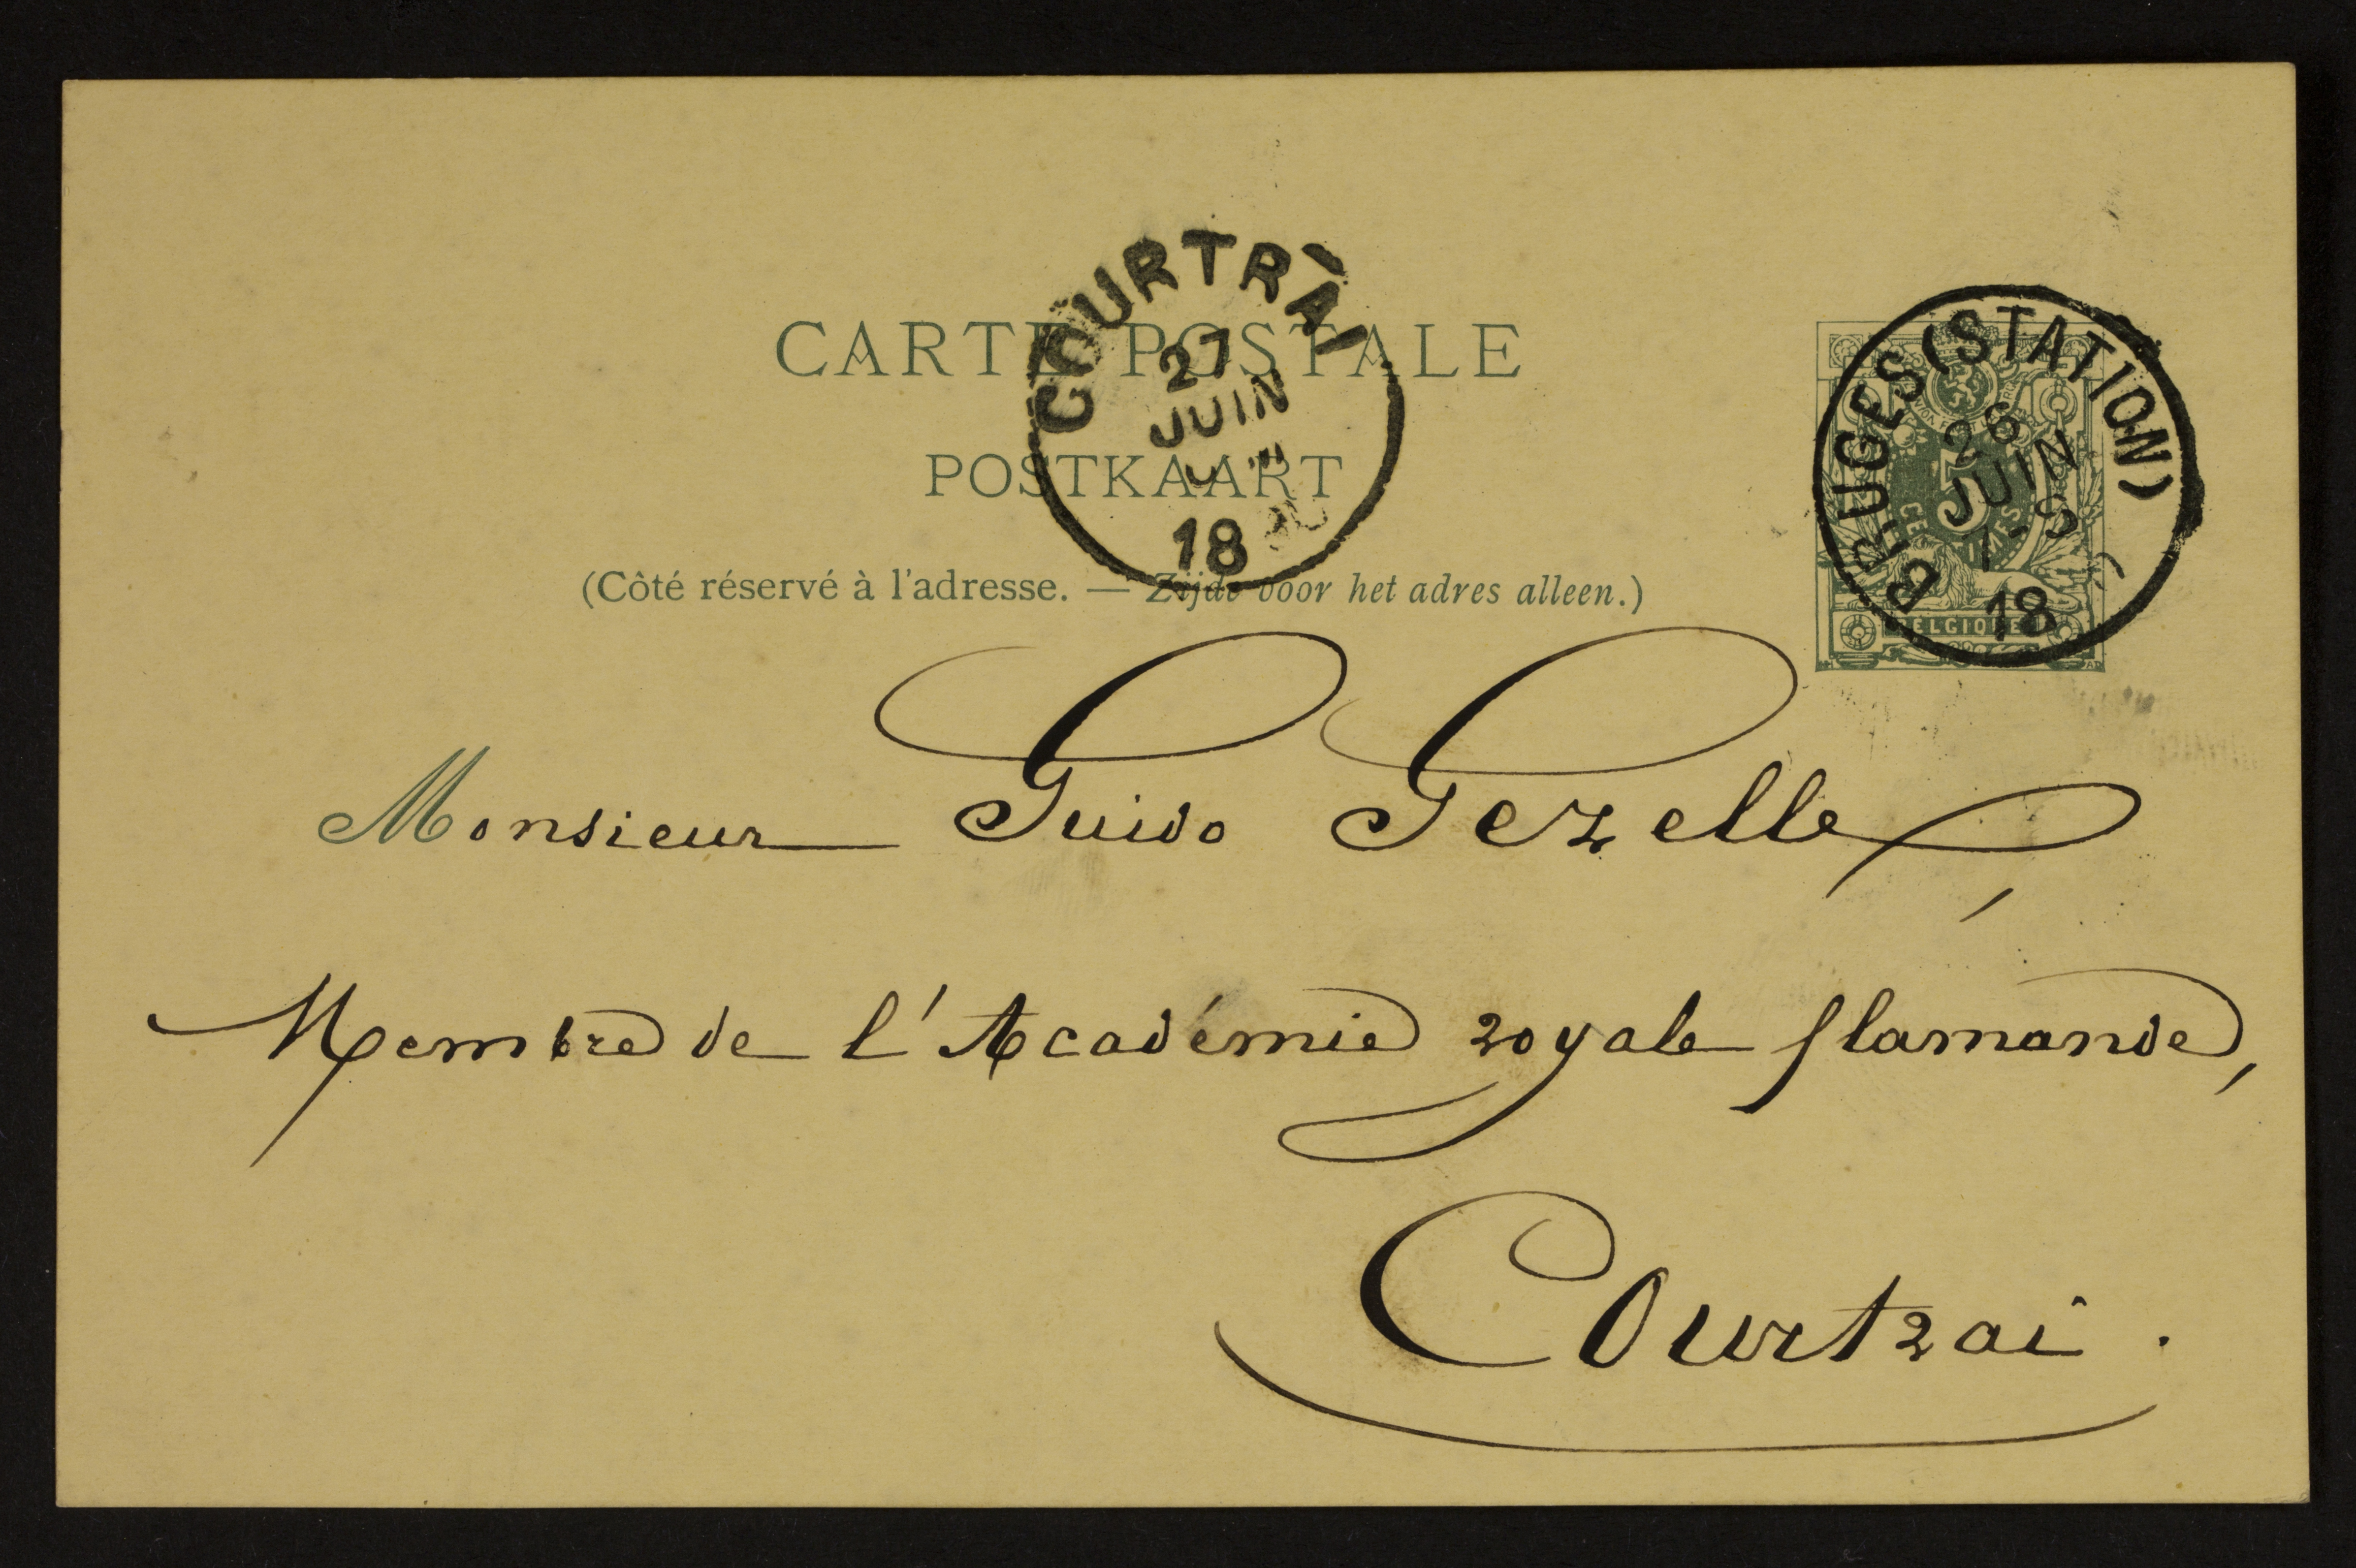 CARTE POSTALE
POSTKAART
(Côté réservé à l'adresse. — Zijde voor het adres alleen.)
COURTRAI
27
JUIN
18
BRUGES (STATION)
26
JUIN
7-S
18
5
CENTIMES
BELGIQUE
Monsieur Guido Gezelle,
Membre de l'Académie royale flamande,
Courtrai.